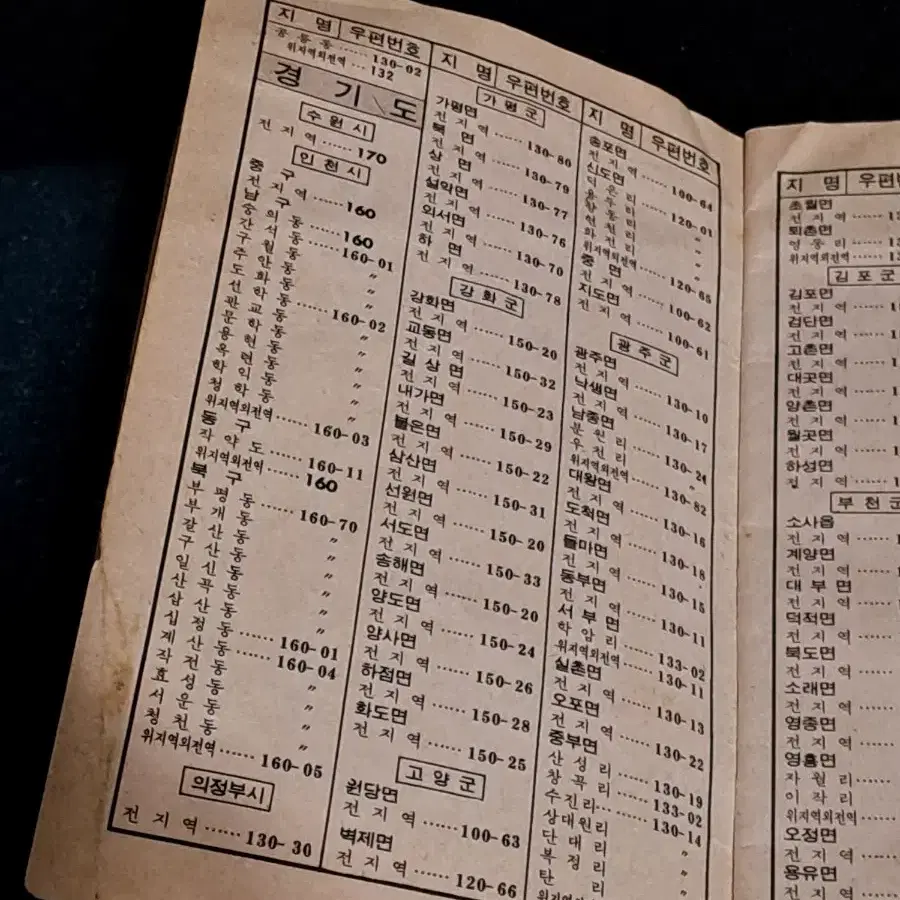 지 명 우편번호
공릉동 …… 130-02
위지역외전역 … 132
경기도
수원시
전지역 …… 170
인천시
중구
전지역 …… 160
남구
숭의동 …… 160
간석동 …… 160-01
구월동 〃
주안동 〃
도화동 …… 160-02
선학동 〃
관교동 〃
문학동 〃
용현동 〃
옥련동 〃
학익동 〃
청학동 〃
위지역외전역 …… 160-03
동구
작약도 …… 160-11
위지역외전역 …… 160
북구
부평동 …… 160-70
부개동 〃
갈산동 〃
구산동 〃
일신동 〃
산곡동 〃
삼산동 …… 160-01
십정동 …… 160-04
계산동 〃
작전동 〃
효성동 〃
서운동 〃
청천동 〃
위지역외전역 …… 160-05
의정부시
전지역 …… 130-30
지 명 우편번호
가평군
가평면
전지역 …… 130-80
북면
전지역 …… 130-79
상면
전지역 …… 130-77
설악면
전지역 …… 130-76
외서면
전지역 …… 130-70
하면
전지역 …… 130-78
강화군
강화면
전지역 …… 150-20
교동면
전지역 …… 150-32
길상면
전지역 …… 150-23
내가면
전지역 …… 150-29
불은면
전지역 …… 150-22
삼산면
전지역 …… 150-31
선원면
전지역 …… 150-20
서도면
전지역 …… 150-33
송해면
전지역 …… 150-20
양도면
전지역 …… 150-24
양사면
전지역 …… 150-26
하점면
전지역 …… 150-28
화도면
전지역 …… 150-25
고양군
원당면
전지역 …… 100-63
벽제면
전지역 …… 120-66
지 명 우편번호
송포면
전지역 …… 100-64
신도면
덕은리 …… 120-01
용두리 〃
향동리 〃
현천리 〃
화전리 〃
위지역외전역 …… 120-65
중면
전지역 …… 100-62
지도면
전지역 …… 100-61
광주군
광주면
전지역 …… 130-10
낙생면
전지역 …… 130-17
남종면
분원리 …… 130-24
우천리 〃
위지역외전역 …… 130-82
대왕면
전지역 …… 130-16
도척면
전지역 …… 130-18
돌마면
전지역 …… 130-15
동부면
전지역 …… 130-11
서부면
학암리 …… 133-02
위지역외전역 …… 130-11
실촌면
전지역 …… 130-13
오포면
전지역 …… 130-22
중부면
산성리 …… 130-19
창곡리 …… 133-02
수진리 …… 130-14
상대원리 〃
단대리 〃
복정리 〃
탄리 〃
지 명 우편번
초월면
전지역 …… 13
퇴촌면
영동리 …… 13
위지역외전역 …… 13
김포군
김포면
전지역 …… 1
검단면
전지역 …… 1
고촌면
전지역 …… 1
대곶면
전지역 …… 1
양촌면
전지역 …… 1
월곶면
전지역 …… 1
하성면
전지역 …… 1
부천군
소사읍
전지역 …… 1
계양면
전지역 ……
대부면
전지역 ……
덕적면
전지역 ……
북도면
전지역 ……
소래면
전지역 ……
영종면
전지역 ……
영흥면
자월리 ……
이작리
위지역외전역 ……
오정면
전지역 ……
용유면
전지역 ……